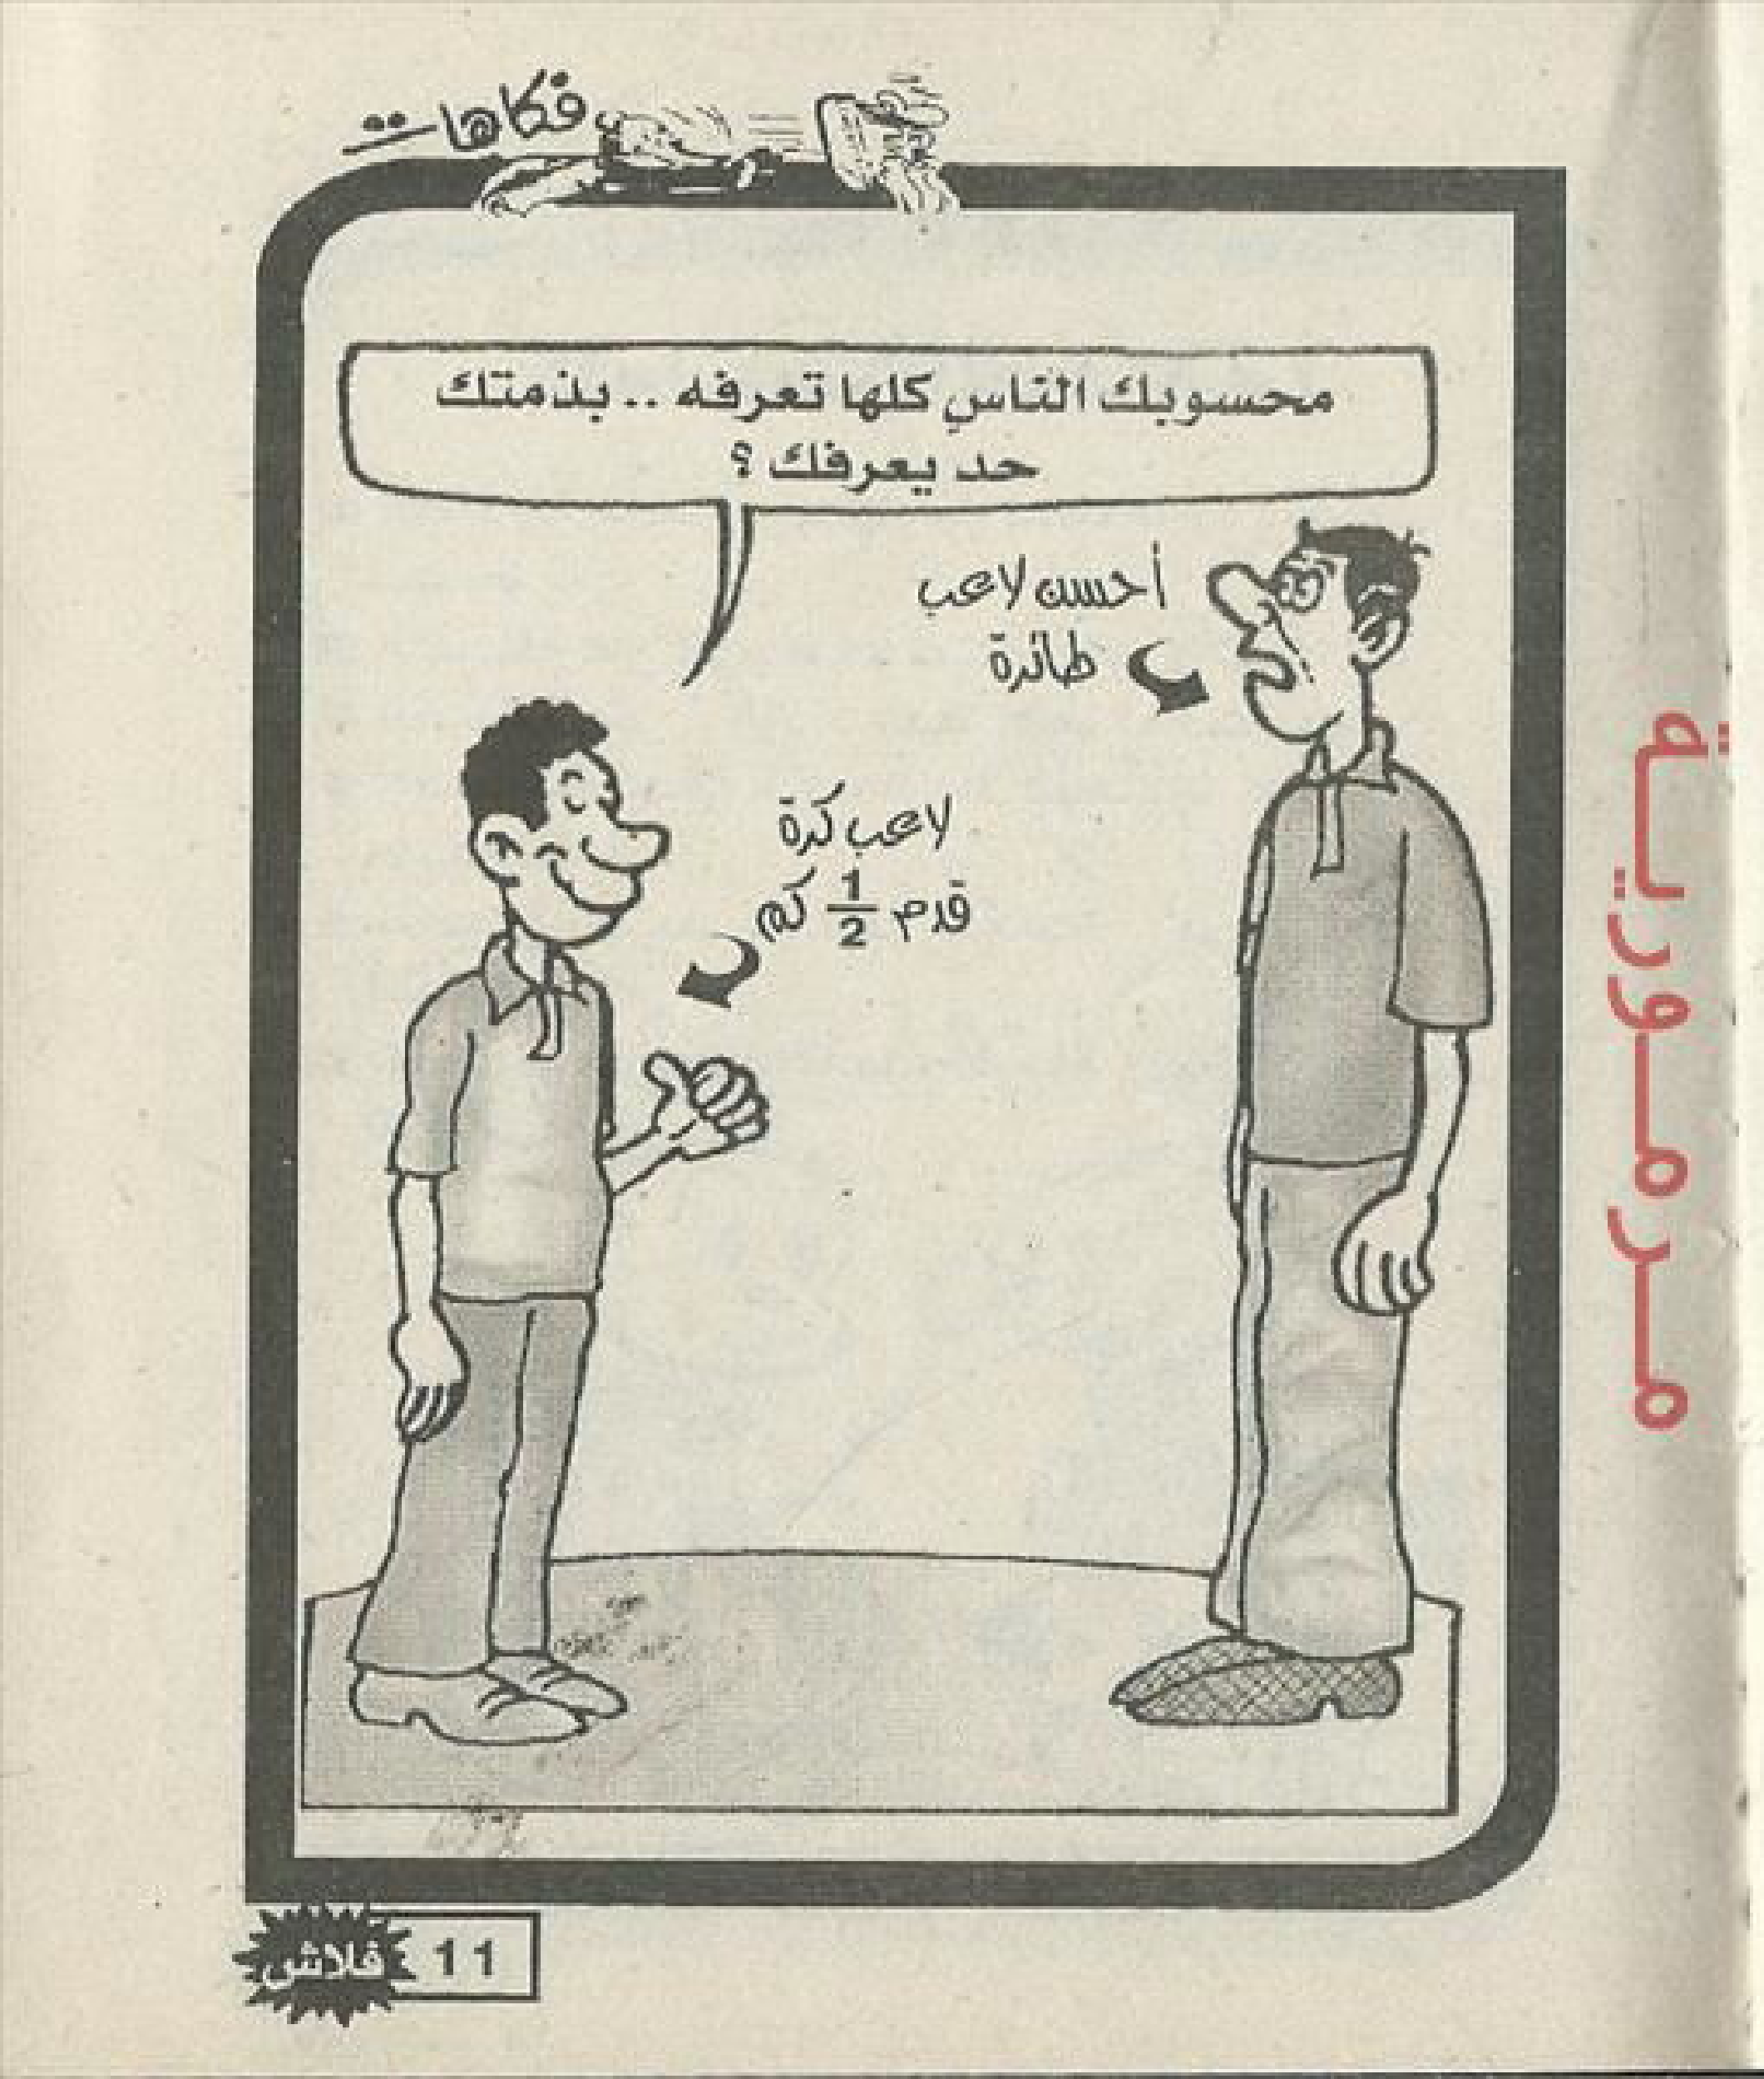 فكاهات
محسوبك الناس كلها تعرفه .. بذمتك
حد يعرفك ؟
أحسن لاعب
طائرة
لاعب كرة
قدم 1/2 كم
مرمورية
11
فلاش